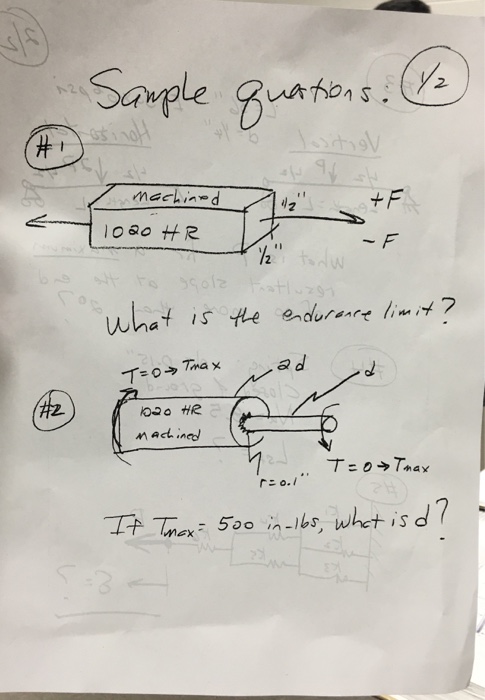 Sample questions. 1/2
#1
machined
1020 HR
1/2"
1/2"
+F
-F
What is the endurance limit?
#2
T=0→Tmax
2d
d
1020 HR
machined
r=0.1"
T=0→Tmax
If Tmax = 500 in-lbs, what is d?